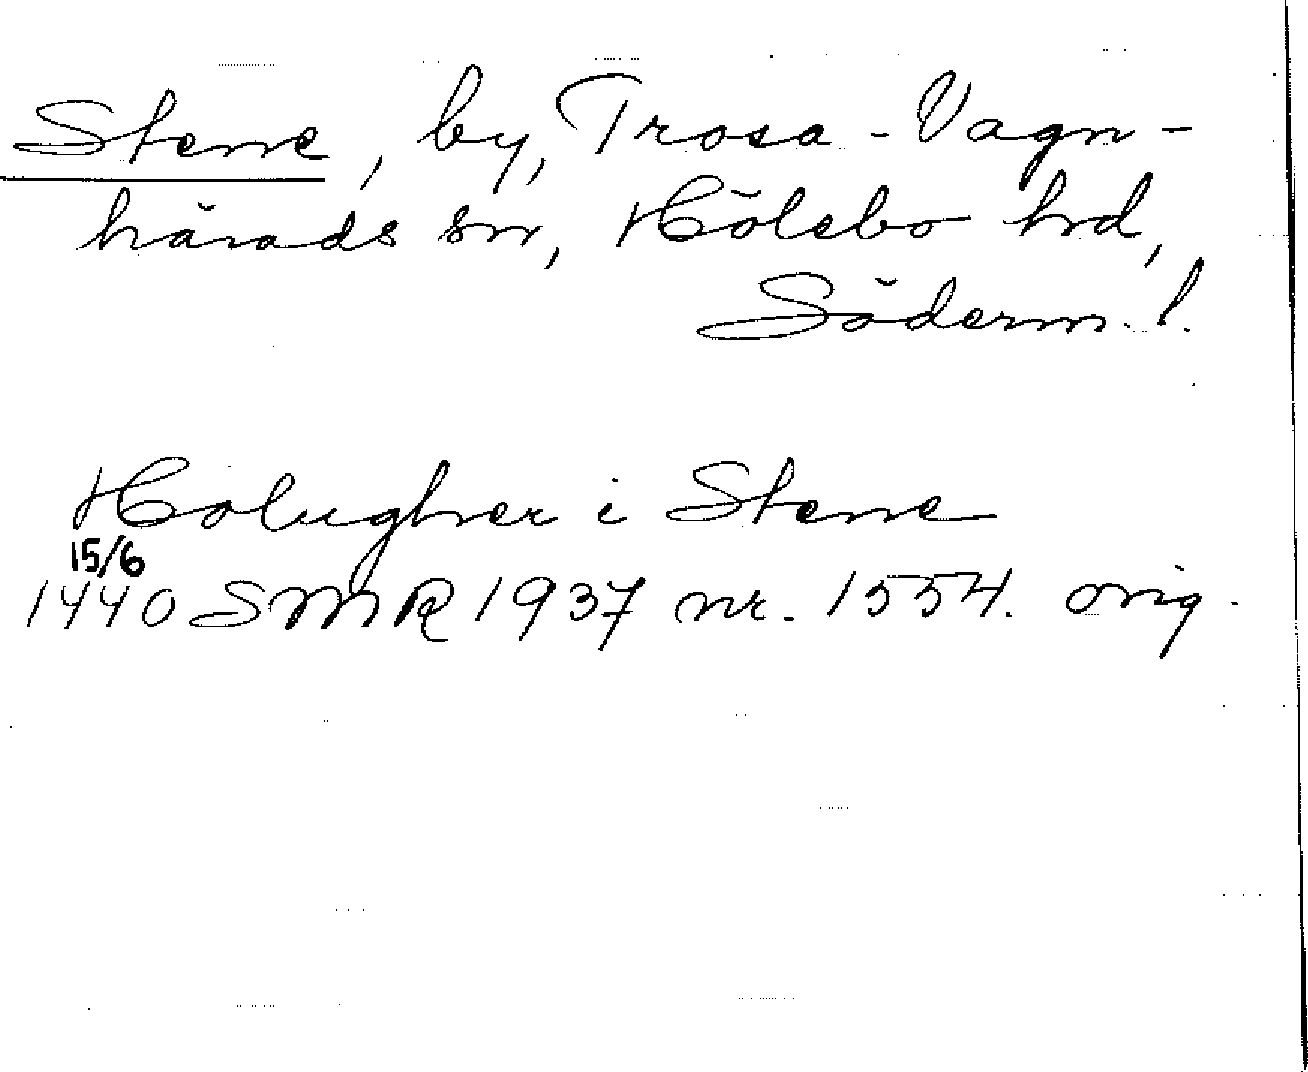 Stene, by, Trosa-Vagn-
härads sn, Hölebo hd,
Söderm. l.
Holugher i Stene
15/6
1440 SMR 1937 nr. 1554. orig.